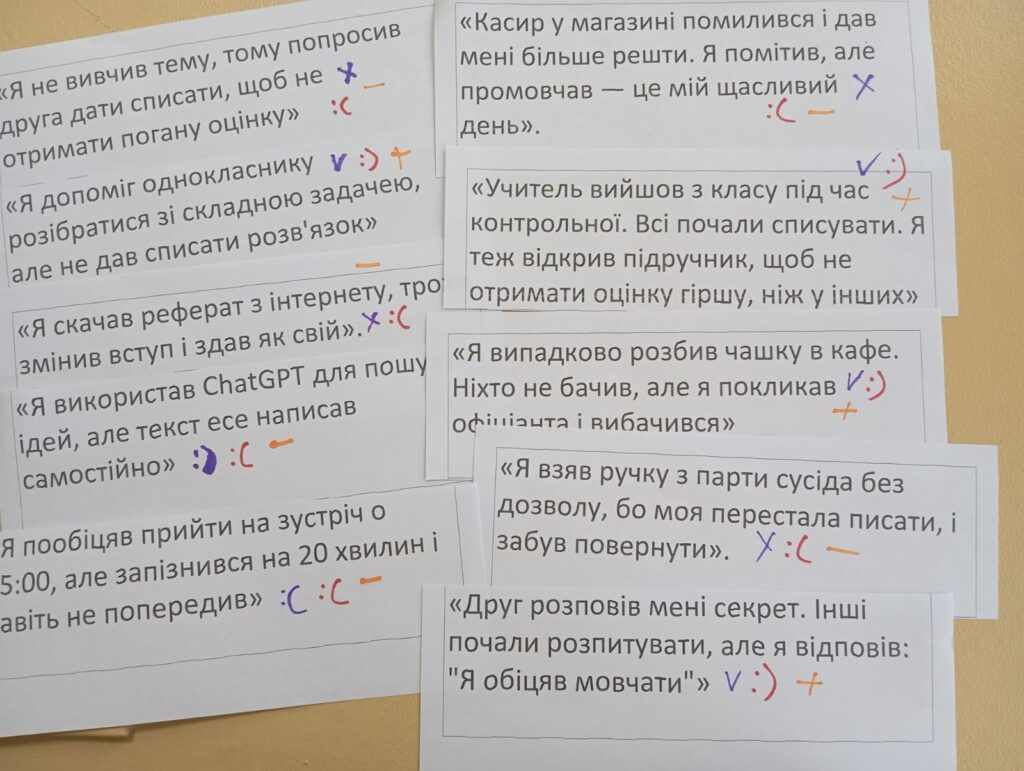 «Я не вивчив тему, тому попросив
друга дати списати, щоб не х –
отримати погану оцінку» :(
«Я допоміг однокласнику v :) +
розібратися зі складною задачею,
але не дав списати розв'язок»
–
«Я скачав реферат з інтернету,
змінив вступ і здав як свій». х :(
«Я використав ChatGPT для
ідей, але текст есе написав
самостійно» :) :( –
Я пообіцяв прийти на зустріч о
5:00, але запізнився на 20 хвилин і
авіть не попередив» :( :( –
«Касир у магазині помилився і дав
мені більше решти. Я помітив, але
промовчав — це мій щасливий х
день». :( –
v :)
«Учитель вийшов з класу під час +
контрольної. Всі почали списувати. Я
теж відкрив підручник, щоб не
отримати оцінку гіршу, ніж у інших»
«Я випадково розбив чашку в кафе.
Ніхто не бачив, але я покликав v :)
+
офіціанта і вибачився»
«Я взяв ручку з парти сусіда без
дозволу, бо моя перестала писати, і
забув повернути». х :( –
«Друг розповів мені секрет. Інші
почали розпитувати, але я відповів:
"Я обіцяв мовчати"» v :) +